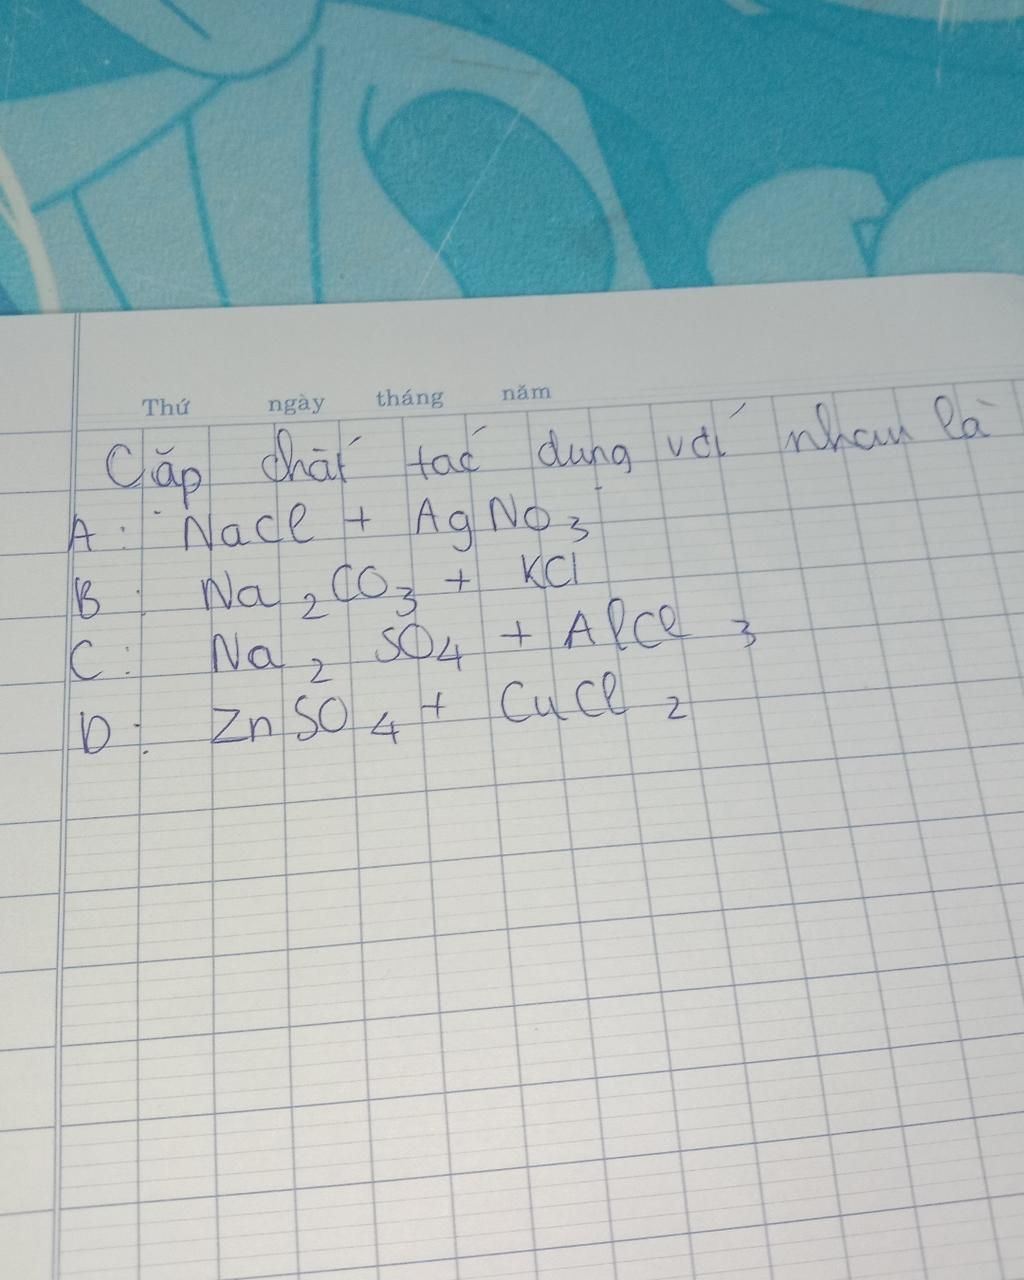 Thứ ngày tháng năm
Cặp chất tác dụng với nhau là
A: NaCl + AgNO3
B: Na2CO3 + KCl
C: Na2SO4 + AlCl3
D: ZnSO4 + CuCl2